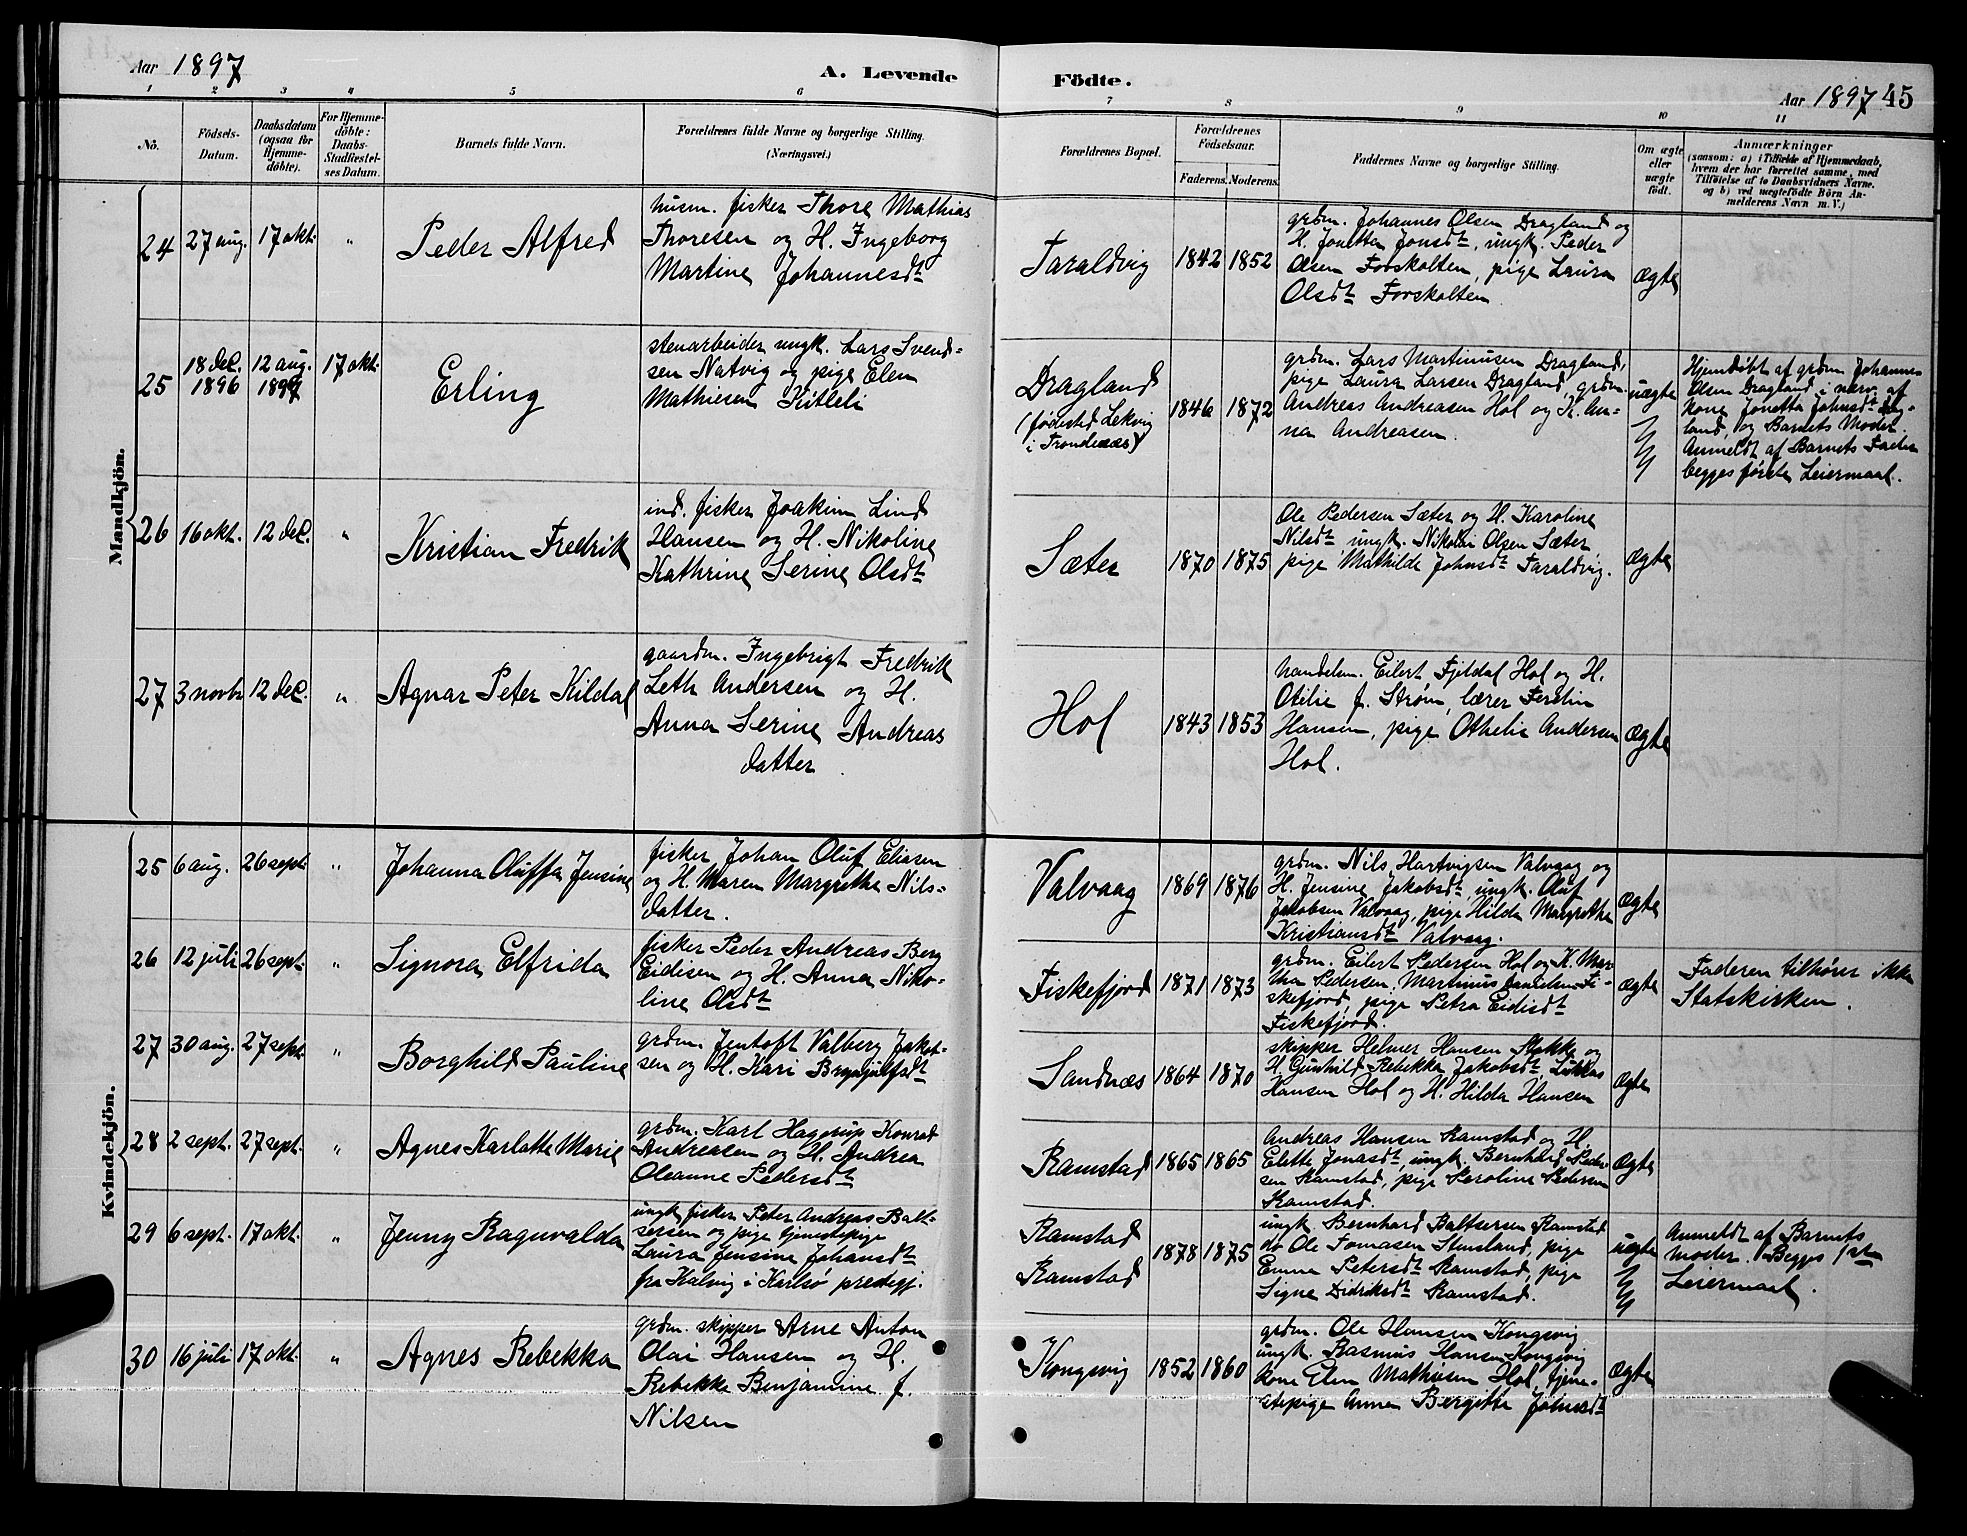 Aar 1897
A. Levende
Födte.
Aar 1897
45
1 2 3 4 5 6 7 8 9 10 11
No.
Födsels-
Datum.
Daabsdatum
(ogsaa för
Hjemme-
döbte).
For Hjemme-
döbte:
Daabs-
Stadfæstel-
ses Datum.
Barnets fulde Navn.
Forældrenes fulde Navne og borgerlige Stilling.
(Næringsvei.)
Forældrenes Bopæl.
Forældrenes
Födselsaar.
Faderens. Moderens.
Faddernes Navne og borgerlige Stilling.
Om ægte
eller
uægte
födt.
Anmærkninger
(saasom: a) i Tilfælde af Hjemmedaab,
hvem der har forrettet samme, med
Tilföielse af to Daabsvidners Navne.
og b) ved uægtefödte Börn An-
melderens Navn m. V.)
Mandkjön.
24 27 aug. 17 okt. " Peder Alfred
husm. fisker Thore Mathias
Thoresen og H. Ingeborg
Martine Johannesdt
Taraldvig 1842 1852
grdm. Johannes Olsen Dragland og
H. Jonetta Jonsdt, ungk. Peder
Olsen Forskalten, pige Laura
Olsdt Forskalten.
ægte
25 18 dec. 1896 12 aug. 1897 17 okt. Erling
stenarbeider ungk. Lars Svend-
sen Natvig og pige Elen
Mathisen Kitleli
Dragland
(fødested Lekvig
i Trondenæs)
1846 1872
grdm. Lars Martinusen Dragland,
pige Laura Larsen Dragland, grdm.
Andreas Andreasen Hol og K. An-
na Andreasen.
uægte
Hjemdøbt af grdm Johannes
Olsen Dragland i nærv. af
kone Jonetta Johnsdt Drag-
land, og Barnets Moder.
Anmeldt af Barnets Fader
begges første Leiermaal.
26 16 okt. 12 dec. " Kristian Fredrik
ind. fisker Joakim Lind
Hansen og H. Nikoline
Kathrine Serine Olsdt
Sæter 1870 1875
Ole Pedersen Sæter og H. Karoline
Nilsdt ungk. Nikolai Olsen Sæter,
pige Mathilde Johnsdt Taraldvig.
ægte
27 3 novbr 12 dec. " Agnar Peter Kildal
gaardm. Ingebrigt Fredrik
Leth Andersen og H.
Anna Serine Andreas
datter.
Hol 1843 1853
handelsm. Eilert Fjeldal Hol og H.
Otilie f. Strøm, lærer Ferdin
Hansen, pige Othelie Andersen
Hol.
ægte
Kvindekjön.
25 6 aug. 26 sept. " Johanna Oluffa Jensine
fisker Johan Oluf Eliasen
og H. Maren Margrethe Nils-
datter.
Valvaag 1869 1876
grdm. Nils Hartvigsen Valvaag og
H. Jensine Jakobsdt, ungk. Oluf
Jakobsen Valvaag, pige Hilda Margrethe
Kristiansdt Valvaag.
ægte
26 12 juli 26 sept. " Signora Elfrida
fisker Peder Andreas Berg
Eidisen og H. Anna Niko-
line Olsdt
Fiskefjord 1871 1873
grdm. Eilert Pedersen Hol og K. Mar
tha Pedersen, Martinus Danielsen Fi-
skefjord, pige Petra Eidisdt
Fiskefjord.
ægte
Faderen tilhører ikke
Statskirken.
27 30 aug. 27 sept. " Borghild Pauline
grdm. Jentoft Valberg Jakob-
sen og H. Kari Brynjulfsdt
Sandnæs 1864 1870
skipper Helmer Hansen Stokke og
H. Gunhild Rebekka Jakobsdt Lukkas
Hansen Hol og H. Hilda Hansen
ægte
28 2 sept. 27 sept. " Agnes Karlotte Marie
grdm. Karl Hagerup Konrad
Andreasen og H. Andrea
Oleanne Pedersdt
Ramstad 1865 1865
Andreas Hansen Ramstad og H.
Elette Jonasdt, ungk. Bernhard Peder-
sen Ramstad, pige Peroline Pedersen
Ramstad.
ægte
29 6 sept. 17 okt. " Jenny Ragnvalda
ungk. fisker Peter Andreas Balt-
sersen og pige tjenestepige
Laura Jensine Johansdt
fra Kalvig i Karlsø prestegj.
Ramstad
Ramstad
1878 1875
ungk. Bernhard Baltsersen Ramstad
do Ole Tomasen Stensland, pige
Emma Petersdt Ramstad, pige
Signe Didriksdt Ramstad.
uægte
Anmeldt af Barnets
Moder. Begges 1ste
Leiermaal.
30 16 juli 17 okt. " Agnes Rebekka
grdm. skipper Arne Anton
Olai Hansen og H.
Rebekka Benjamine f.
Nilsen
Kongsvig 1852 1860
grdm. Ole Hansen Kongsvig
ungk. Rasmus Hansen Kongsvig
kone Elen Mathisen Hol, tjene-
stepige Anna Bergitte Johnsdt
ægte